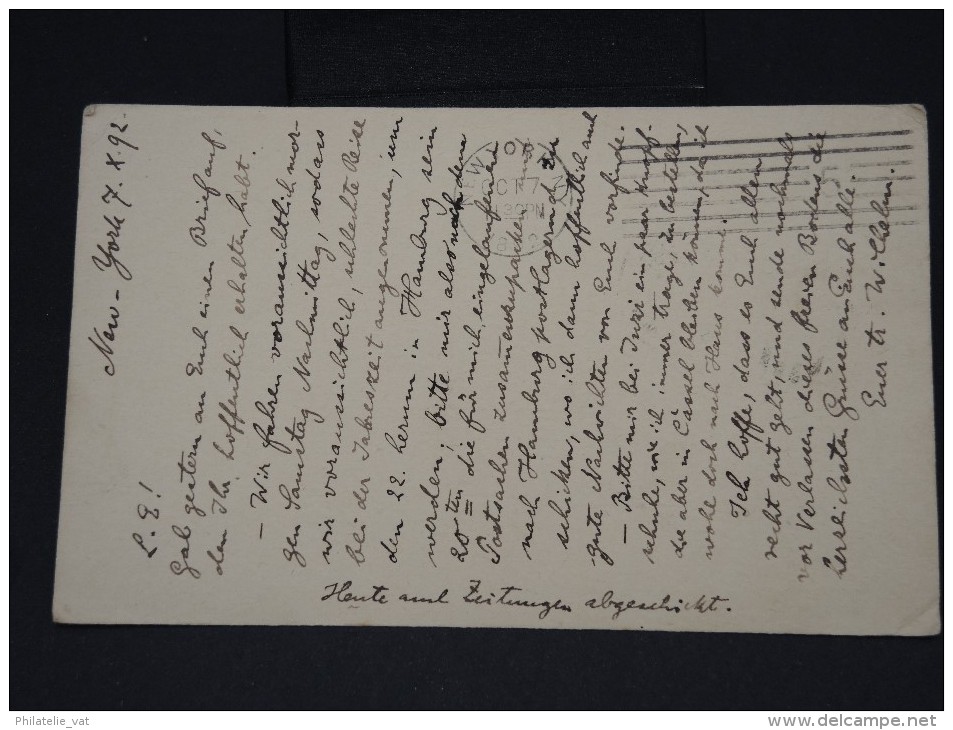 New-York 7. X. 92.
L. E!
Gab gestern an Euch einen Brief auf,
den Ihr hoffentlich erhalten habt.
– Wir fahren voraussichtlich mor-
gen Samstag Nachmittag, sodass
wir voraussichtlich, schlechte Reise
bei der Jahreszeit angenommen, um
den 22. herum in Hamburg sein
werden; bitte mir also nach dem
20ten die für mich eingelaufenen
Postsachen zusammenzupacken und
nach Hamburg postlagernd zu
schicken, wo ich dann hoffentlich auch
gute Nachrichten von Euch vorfinde.
– Bitte mir bei ein paar Knopf-
schuhe, wie ich immer trage, zu bestellen,
die aber in Cassel bleiben können, da ich
wohl doch nach Haus komme.
Ich hoffe, dass es Euch allen
recht gut geht, und sende nochmals
vor Verlassen dieses freien Bodens die
herzlichsten Grüsse an Euch alle.
Euer tr. Wilhelm.
Heute auch Zeitungen abgeschickt.
NEW YORK
OCT 7
30PM
Philatelie_vat
www.delcampe.net